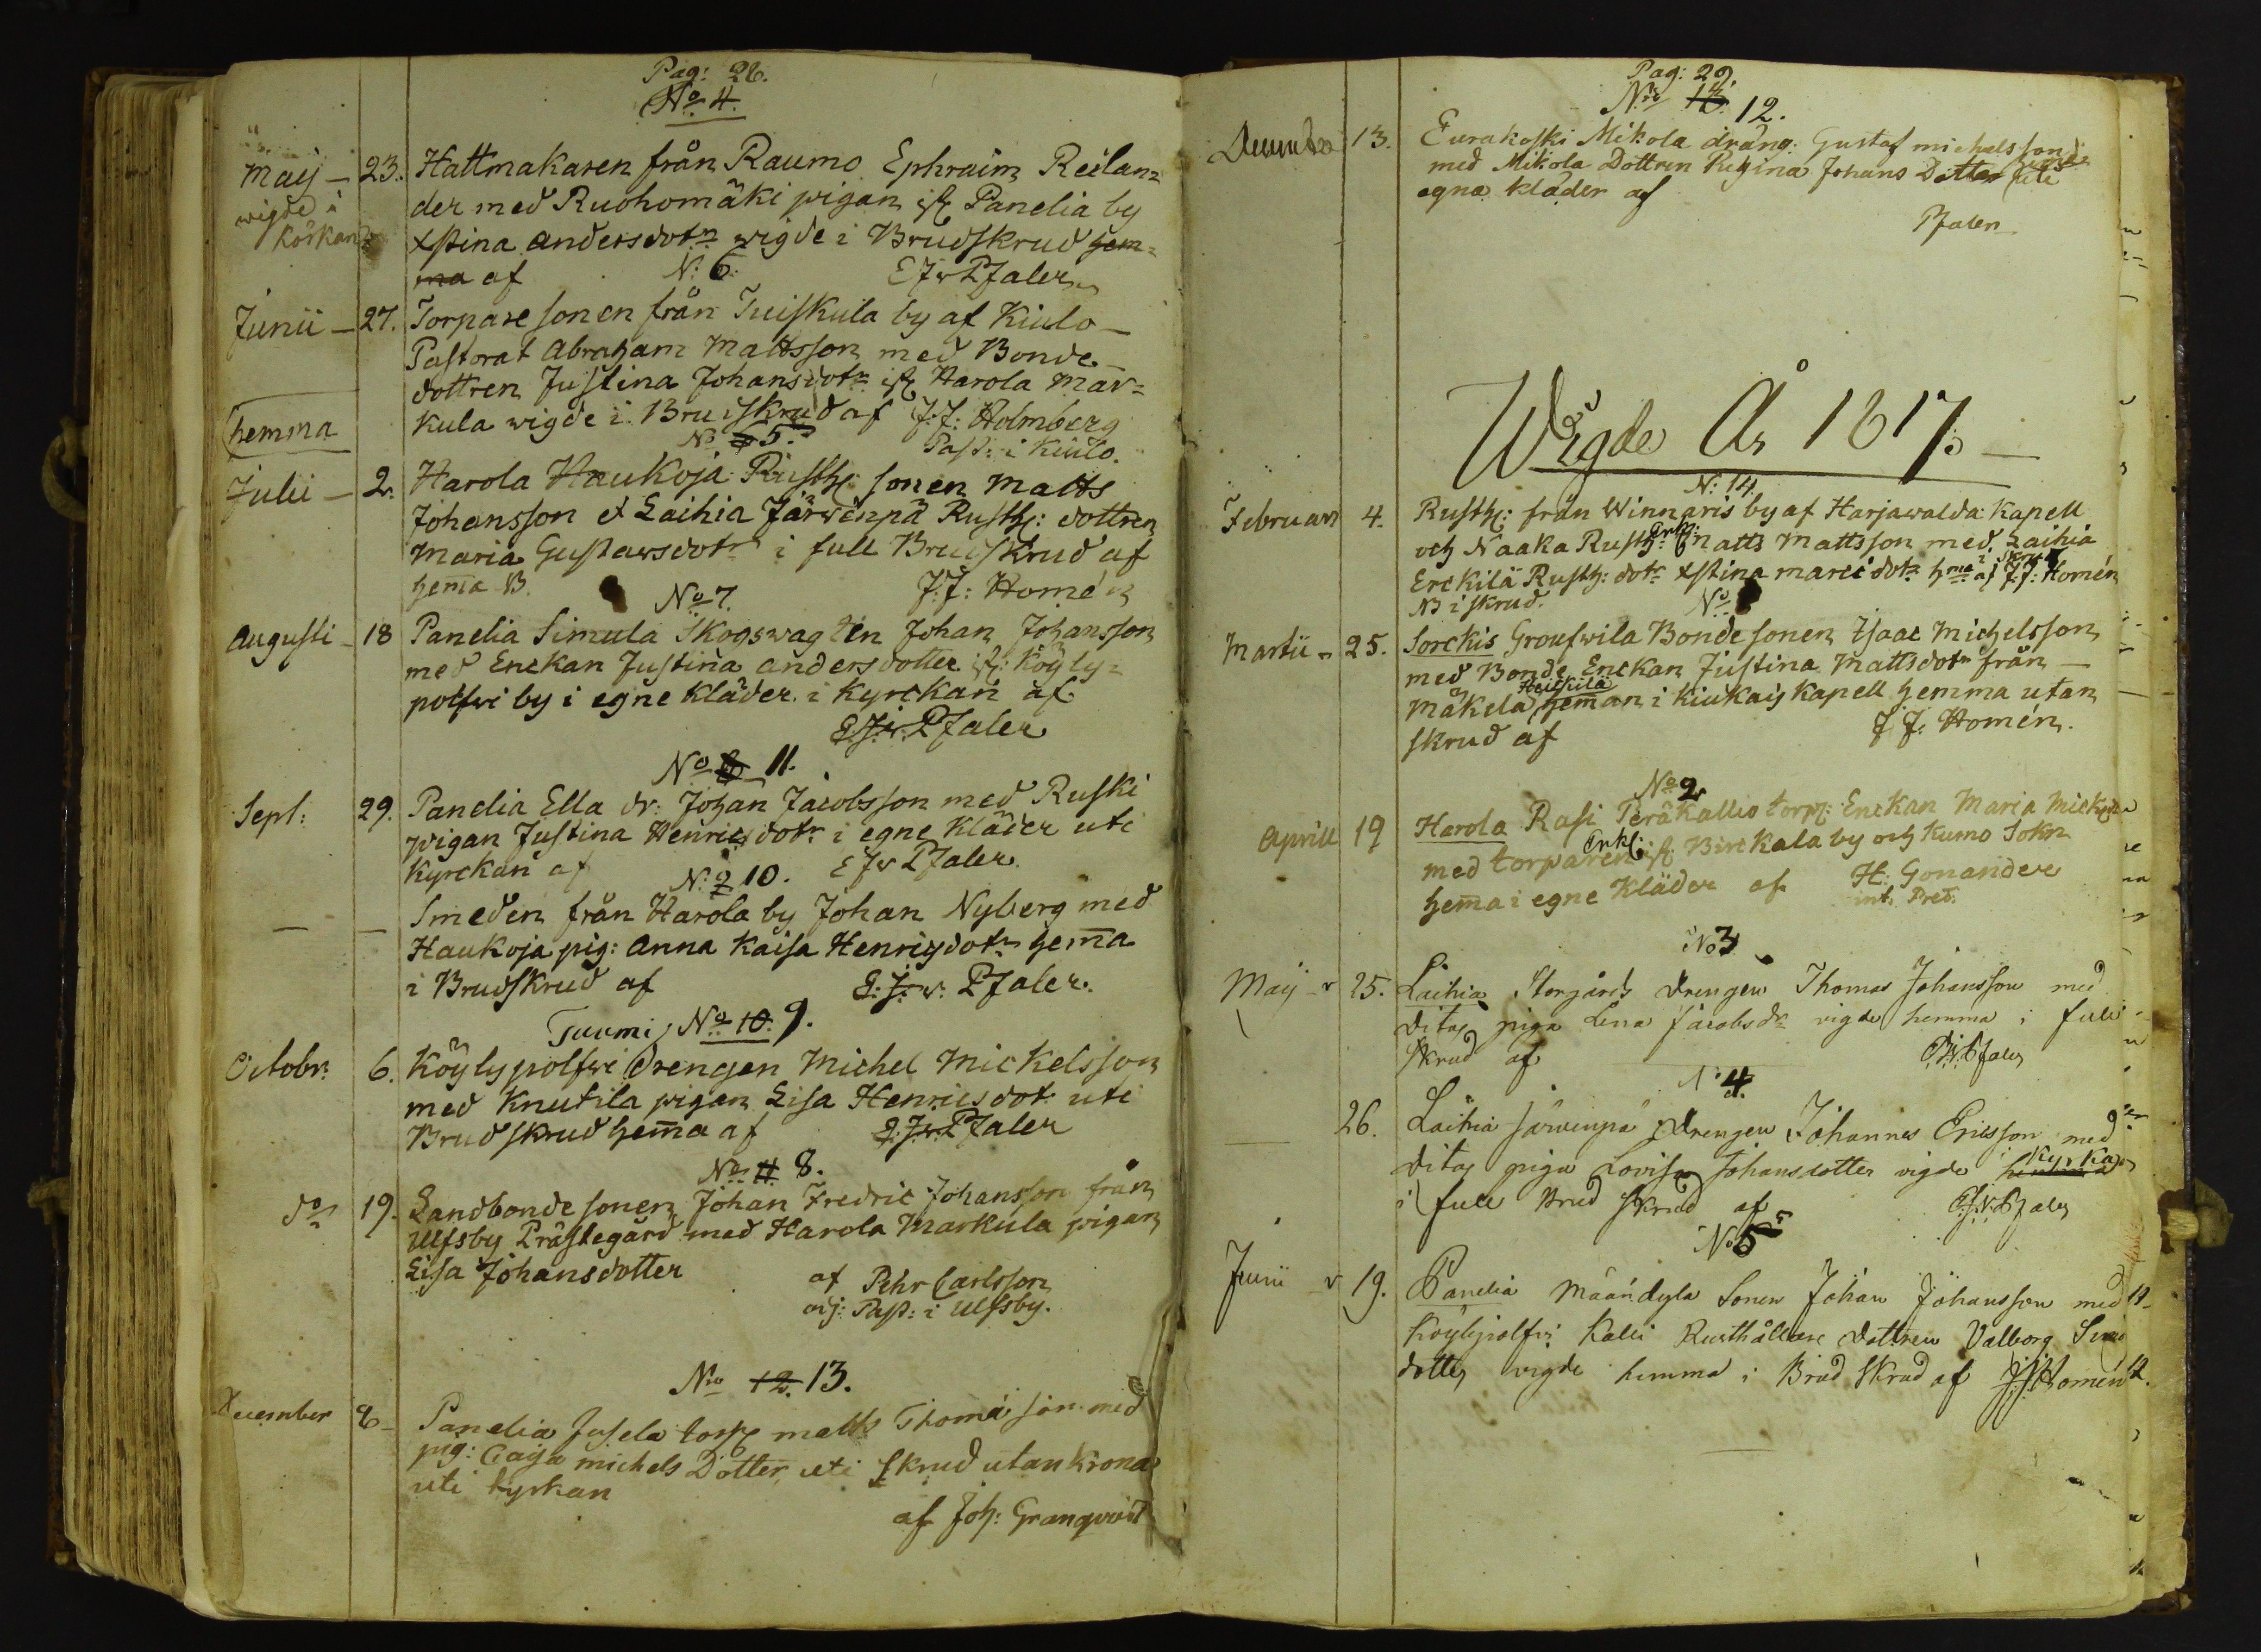 Pag: 28.
No 4.
Maij - 23. Hattmakaren från Raumo Ephraim Reilan=
wigde i der med Ruohomäki pigan ifr. Panelia by
körkan Xstina andersdotr. wigde i Brudskrud hem=
ma af N: 6. EJv Pfaler
Junii - 27. Torpare sonen från Tuiskula by af Kiulo
Pastorat Abraham Mattsson med Bonde
dottren Justina Johansdotr. ifr. Harola Mar=
hemma kula wigde i Brudskrud af J:J: Holmberg
No 5. Past: i Kiulo.
Julii - 2. Harola Haukoja Rusth: sonen Matts
Johansson & Laihia Järwenpä Rusth: dottren
Maria Gustavsdotr. i full Brudskrud af
hema B. J:J: Homén
No 7.
Augusti - 18 Panelia Simula Skogswagten Johan Johansson
med Enckan Justina andersdotter ifr: Köyly=
polfwi by i egne kläder i Kyrckan af
E:J:v. Pfaler
No 8 11.
Sept: 29. Panelia Ella dr: Johan Jacobsson med Ruski
pigan Justina Henricsdotr. i egne kläder uti
Kyrckan af EJv Pfaler.
N: 9 10.
— — Smeden från Harola by Johan Nyberg med
Haukoja pig: Anna Kaisa Henricsdotr. hema
i Brudskrud af E:J:v: Pfaler.
Tuumi No 10. 9.
Octobr: 6. Köylypolfwi Drengen Michel Mickelsson
med Knutila pigan Lisa Henricsdot: uti
Brudskrud hema af E:J:v: Pfaler
No 11 8.
do 19. Landbonde sonen Johan Fredric Johansson från
Ulfsby Prästegård med Harola Markula pigan
Lisa Johansdotter af Pehr Carlsson
vij: Past: i Ulfsby.
No 12. 13.
December 8 Panelia Jusela torp matts Thoma son med
pig: Caisa michels Dotter, uti Skrud utan Krona
uti kyrkan
af Joh: Granqvist
Pag: 29.
No 13. 12.
December 13. Eurakoski Mikola dräng: Gustaf michelsson
med Mikola Dottren Regina Johans Dotter uti
egna kläder af
Pfaler
Wigde År 1817.
N: 14.
Februari 4. Rusth: från Winnaris by af Harjawalda Kapell
och Naaka Rusth: Enkl: Matts Mattsson med Laihia
Erckilä Rusth: dotr. Xstina marcidotr. hma i skrud af J.J: Homén
B i skrud. No 1
Martii 25. Sorckis Groufwila Bondesonen Isaac Michelsson
med Bonde Enckan Justina Mattsdotr. från
Mäkela Heickilä heman i Kiukais Kapell hemma utan
skrud af J.J: Homén.
No 2
Aprill 19 Harola Rasi Peräkallio torp: Enckan Maria
med torparen Enkl: ifr. Birckala by och Kumo Sokn
hema i egne kläder af H: Gonander
int. Pred.
No 3
Maij 25. Laihia Storgårds drengen Thomas Johansson med
ditos piga Lena Jacobsdr. vigde hemma i full
skrud af EJv Pfaler
N: 4.
26. Laihia Järvenpä drengen Johannes Ericsson med
ditos piga Lovisa Johansdotter vigde hemma Kyrka
i full Brud Skrud af EJv Pfaler
No 5
Junii 19. Panelia Määndyla Sonen Johan Johansson med
Köylypolfvi Kalli Rusthållare dottren Valborg
dotter vigde hemma i Brud Skrud af JJ Homén